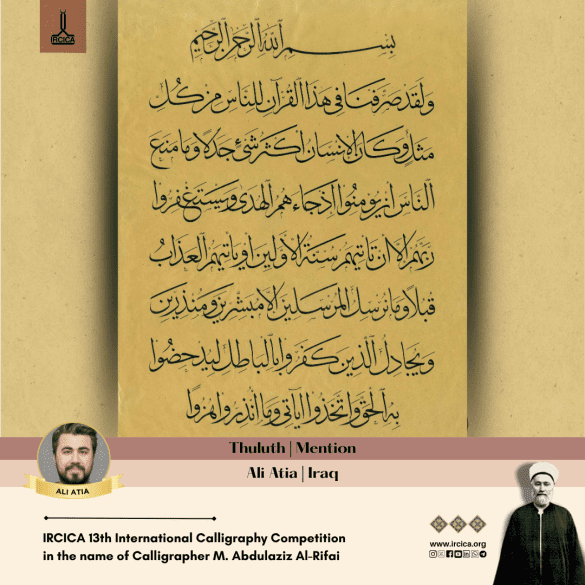 IRCICA
بسم الله الرحمن الرحيم
ولقد صرفنا في هذا القرآن للناس من كل
مثل وكان الانسان اكثر شئ جدلا وما منع
الناس ان يومنوا اذ جاءهم الهدى ويستغفروا
ربهم الا ان تاتيهم سنة الاولين او ياتيهم العذاب
قبلا وما نرسل المرسلين الا مبشرين ومنذرين
ويجادل الذين كفروا بالباطل ليدحضوا
به الحق واتخذوا اياتي وما انذروا هزوا
Thuluth | Mention
Ali Atia | Iraq
ALI ATIA
IRCICA 13th International Calligraphy Competition
in the name of Calligrapher M. Abdulaziz Al-Rifai
www.ircica.org